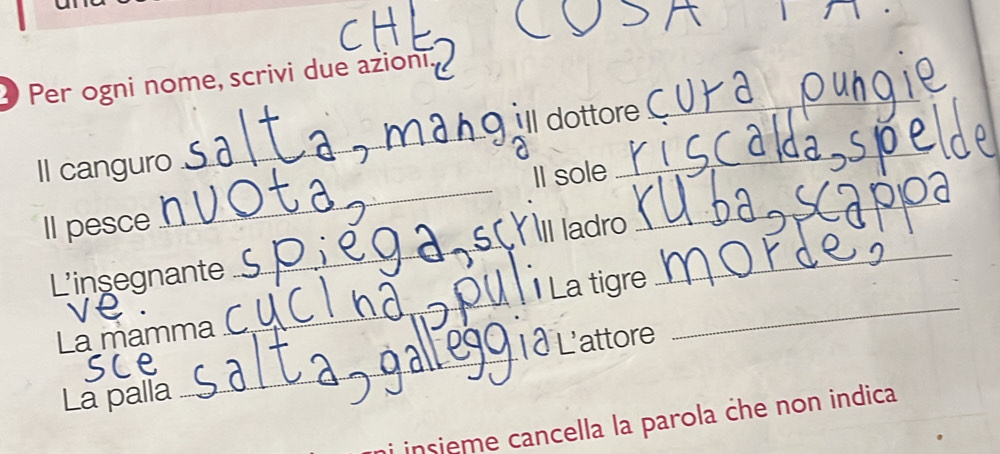 CHE COSA FA.
2 Per ogni nome, scrivi due azioni.
Il canguro salta, mangia
Il pesce nuota,
L'insegnante spiega, scrive.
La mamma cucina, pulisce
La palla salta, galleggia
Il dottore cura pungie
Il sole riscalda, spelde
Il ladro ruba, scappa
La tigre morde,
L'attore
insieme cancella la parola che non indica